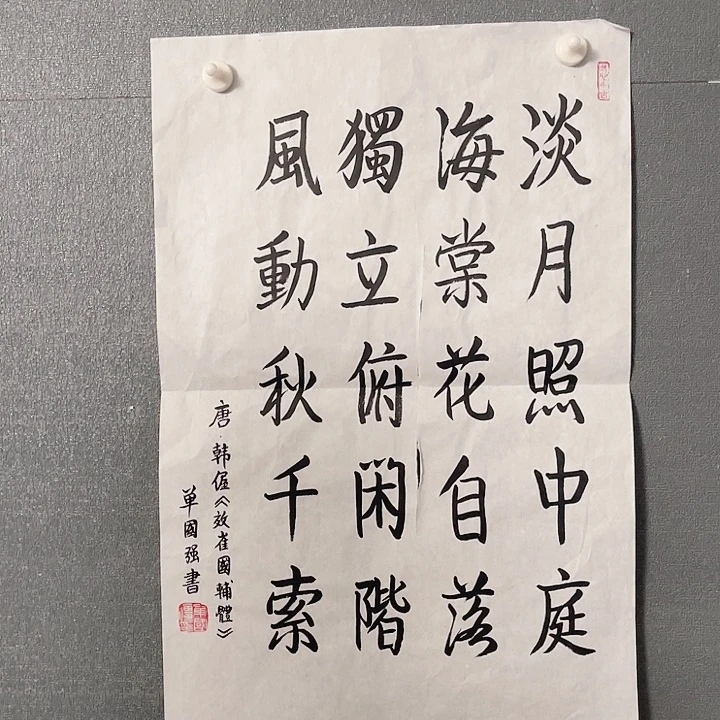 淡月照中庭
海棠花自落
獨立俯閑階
風動秋千索
唐·韩偓《效崔國輔體》
单國强書